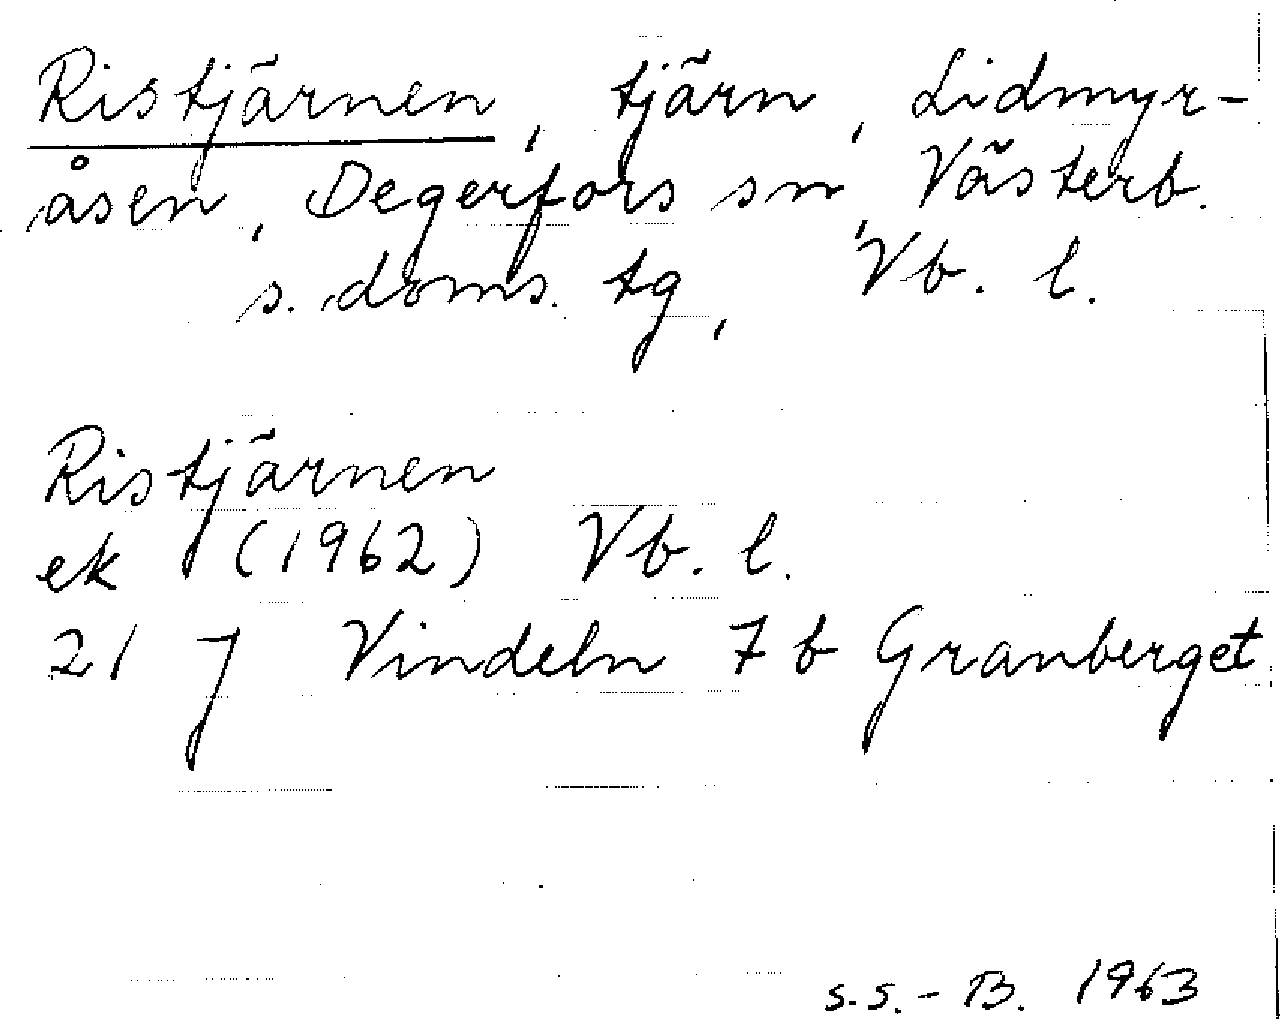 Ristjärnen, tjärn, Lidmyr-
åsen, Degerfors sn, Västerb.
s. doms. tg, Vb. l.
Ristjärnen
ek (1962) Vb. l.
21 J Vindeln 7 b Granberget
s.s.-B. 1963